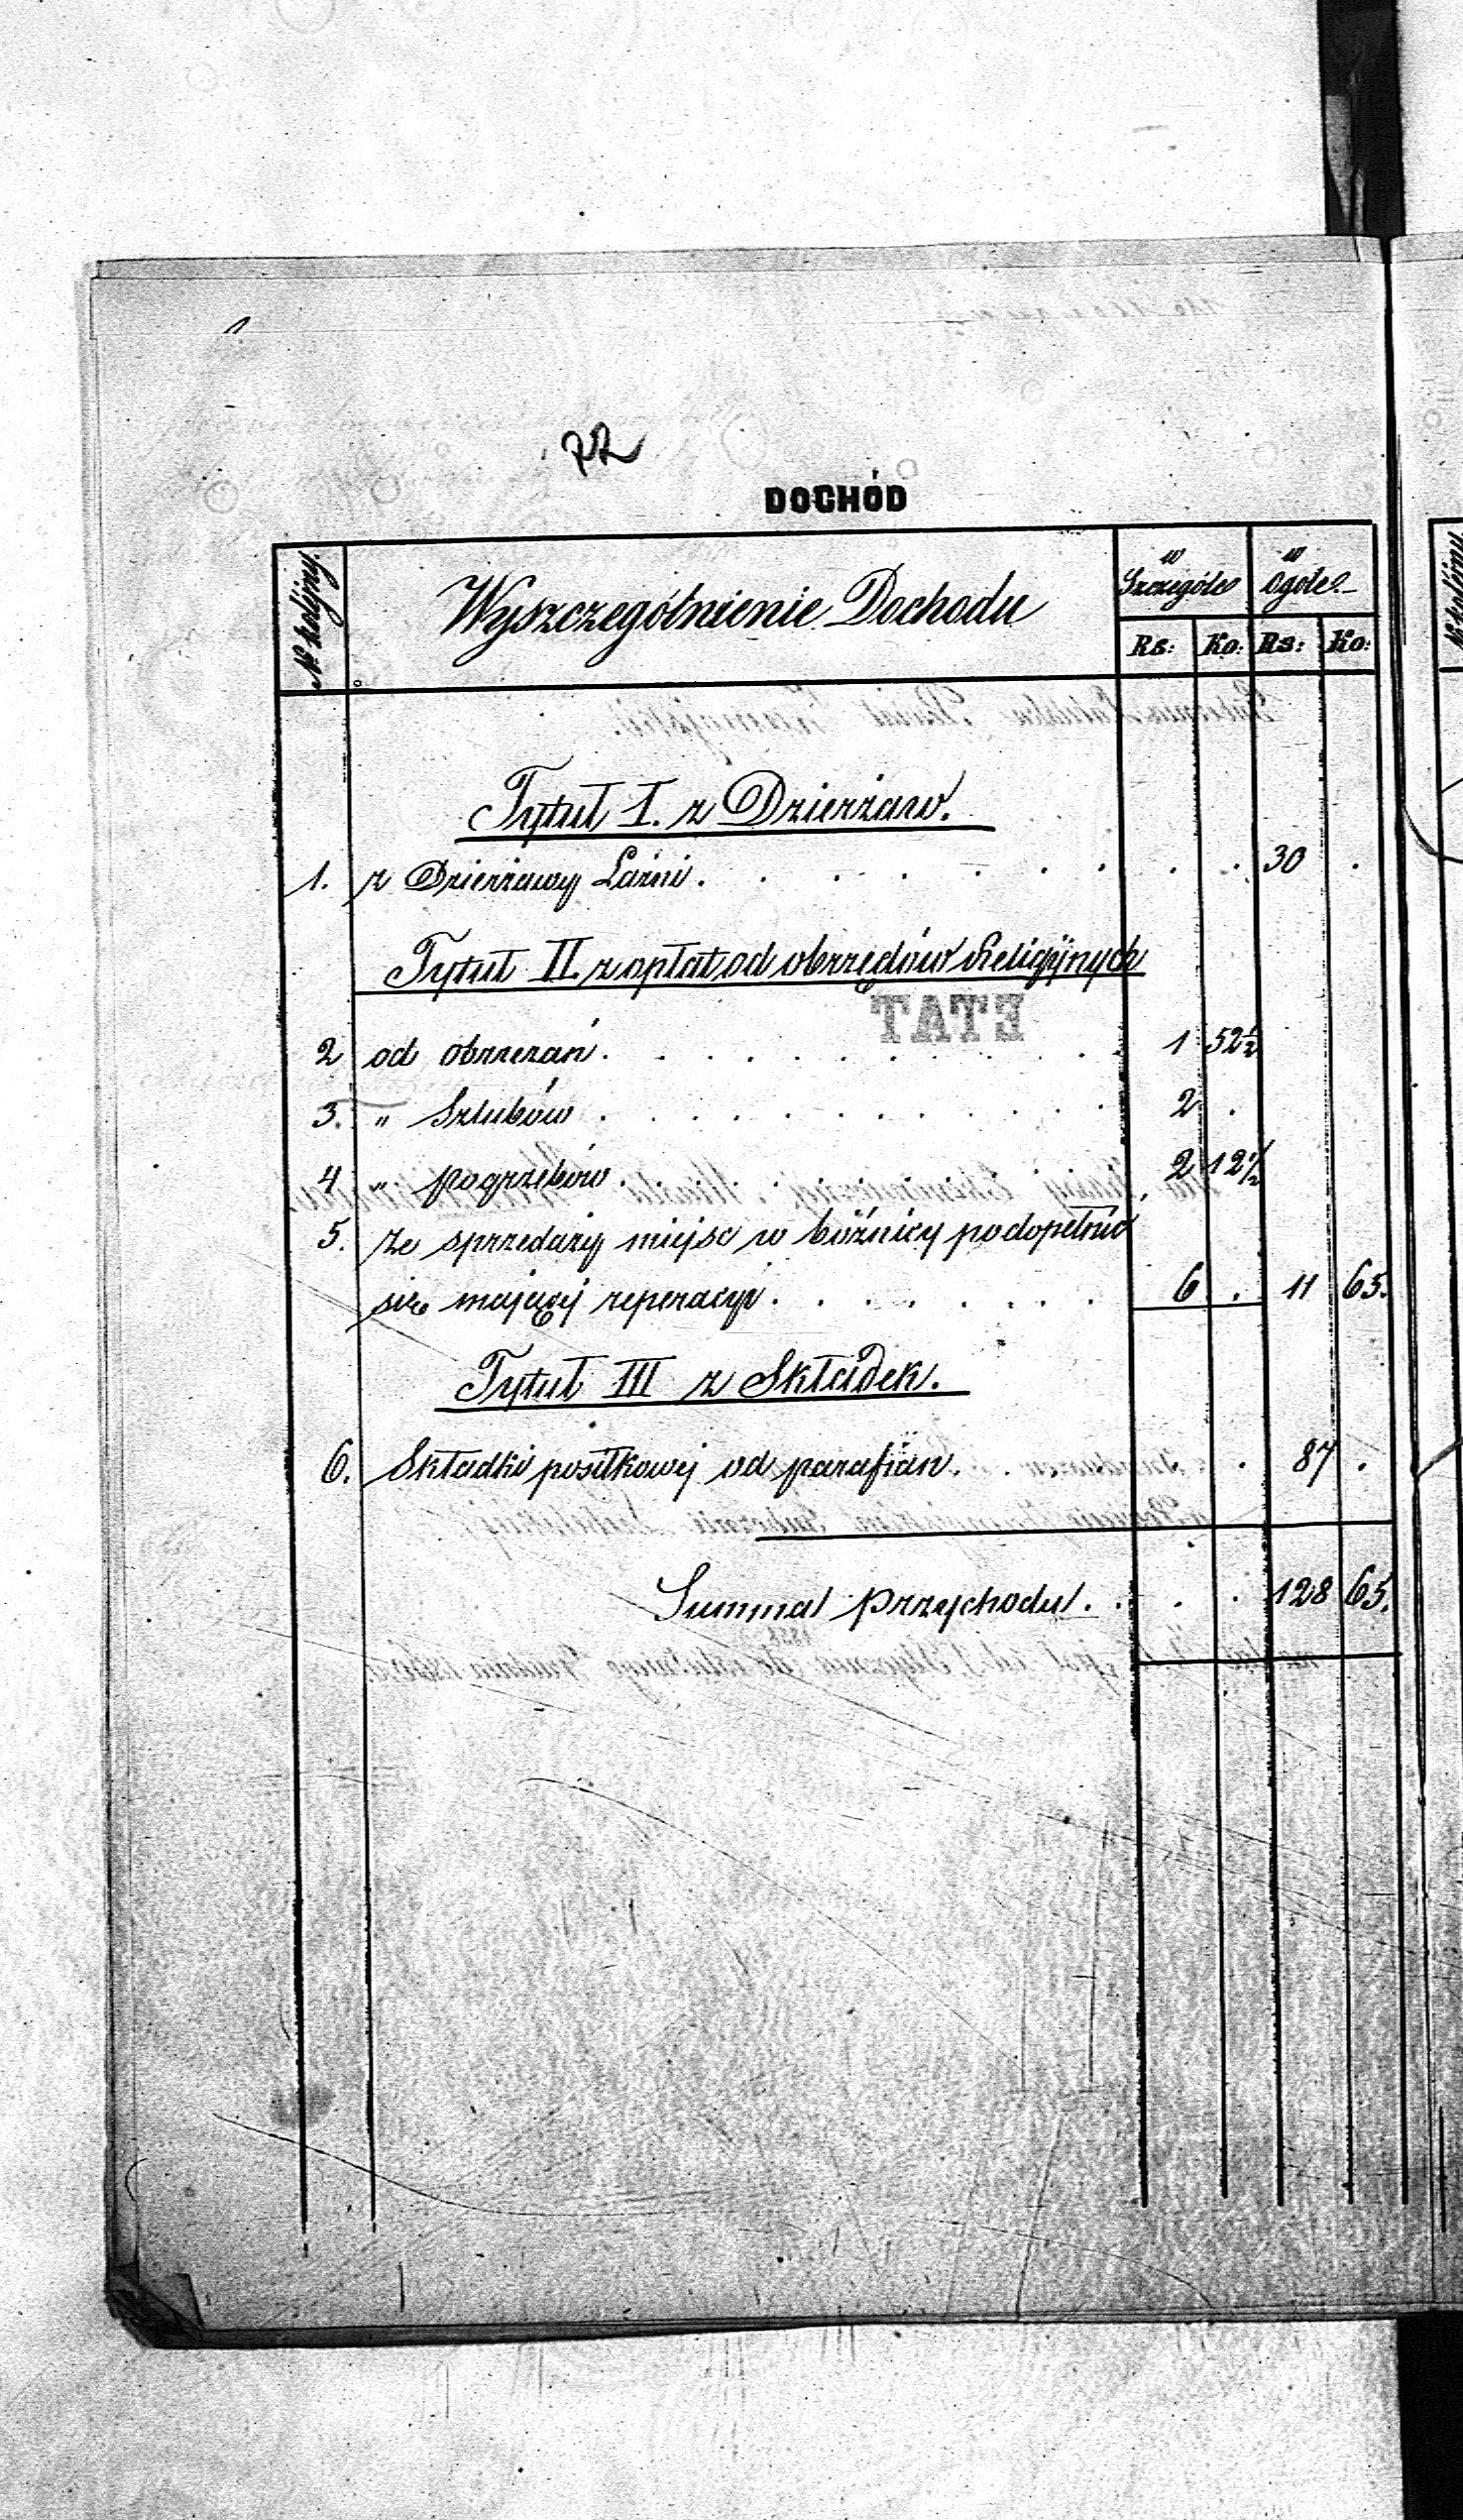 DOCHÓD
№ kolejny.
Wyszczególnienie Dochodu
w Szczególe
w ogóle
Rs: Ko: Rs: Ko:
Tytuł I. z Dzierżaw.
1. z Dzierżawy Łaźni . . . . . . . . . 30 .
Tytuł II z opłat od obrzędów Religijnych
ETAT
2 od obrzezań . . . . . . . . . 1 52½
3. " Szlubów . . . . . . . . . 2 .
4 " pogrzebów . . . . . . . 2 12½
5. ze sprzedaży miejsc w bóżnicy po dopełnić
się mającej reperacyi . . . . . . . 6 . 11 65.
Tytuł III z Składek.
6. Składki posiłkowej od parafian . . . . . 87 .
Summa przychodu . . . . 128 65.